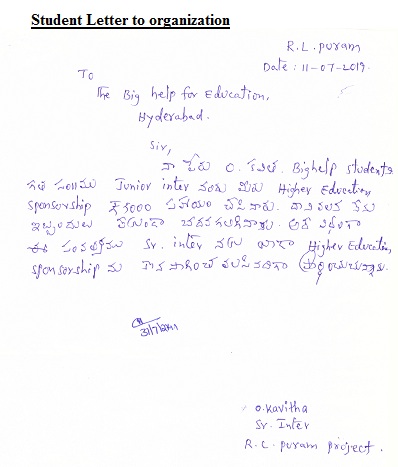 Student Letter to organization
R.L. puram
Date : 11-07-2019.
To
The Big help for Education,
Hyderabad.
Sir,
నా పేరు O. కవిత. Bighelp Students
గత సం॥ము Junior inter నందు మీరు Higher Education
Sponsorship ₹5000 సహాయం చేసినారు. దాని వలన నేను
ఇబ్బందులు లేకుండా చదవగలిగినాను. అదే విధంగా
ఈ సంవత్సరము Sr. inter నకు కూడా Higher Education,
sponsorship ను కొనసాగించ వలసినదిగా ప్రార్థించుచున్నాను.
O.Kavitha
Sr. Inter
R.L. puram project.